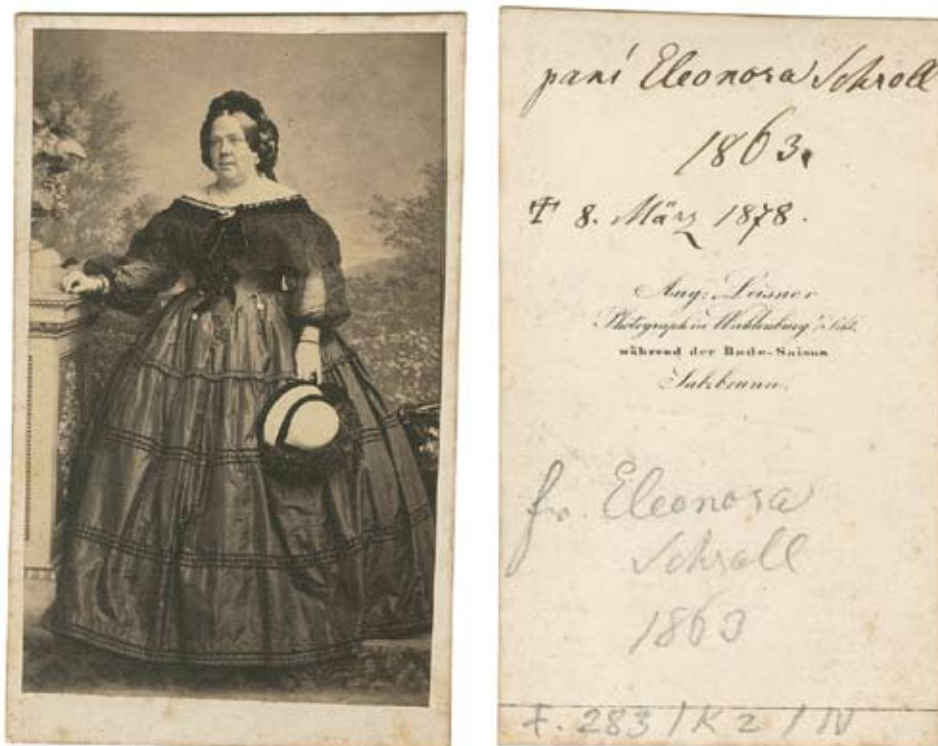 paní Eleonora Schroll
1863.
† 8. März 1878.
Aug: Leisner
Photograph in Waldenburg i/Schl.
während der Bade-Saison
Salzbrunn.
fr. Eleonora
Schroll
1863
F. 283 / K 2 / IV